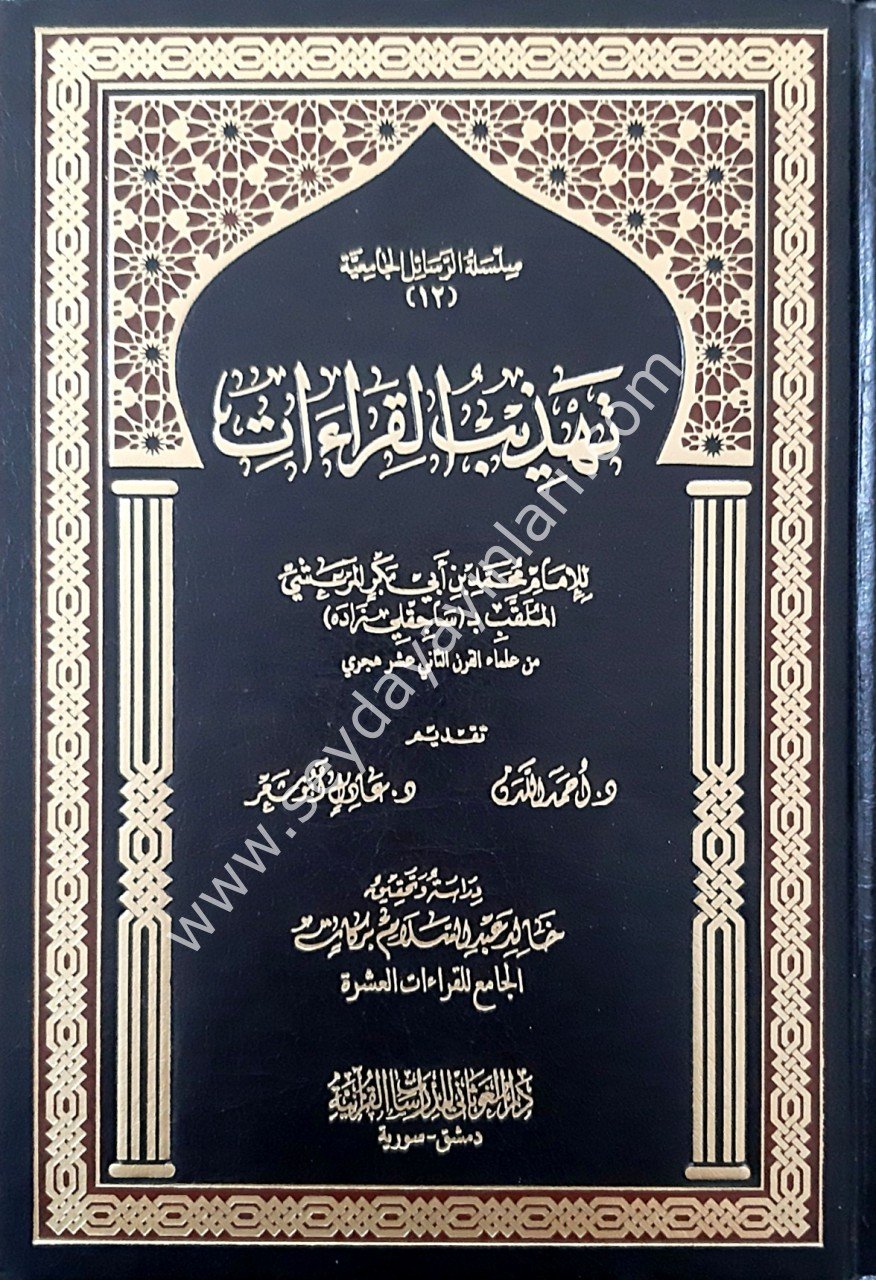 سلسلة الرسائل الجامعية
(١٢)
تهذيب القراءات
للإمام محمد بن أبي بكر المرعشي
الملقب بـ (ساجقلي زاده)
من علماء القرن الثاني عشر هجري
تقديم
د. أحمد اللدن د. عادل أبو شعر
دراسة وتحقيق
خالد عبد السلام بركات
الجامع للقراءات العشرة
دار الغوثاني للدراسات القرآنية
دمشق - سورية
www.seydayayinlari.com